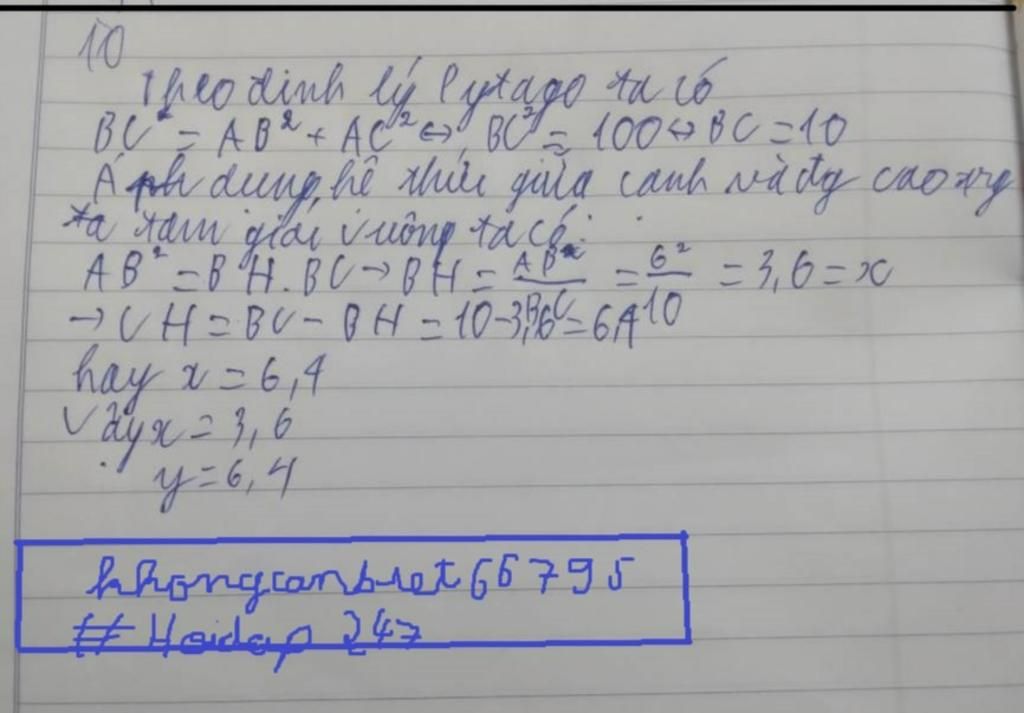 10
Theo định lý Pytago ta có
BC² = AB² + AC² ⇔ BC² = 100 ⇔ BC = 10
Áp dụng hê thức giữa canh và đg cao trg
ta tam giái vuông ta có:
AB² = BH.BC → BH = AB²/BC = 6²/10 = 3,6 = x
→ CH = BC - BH = 10 - 3,6 = 6,4
hay x = 6,4
Vậy x = 3,6
y = 6,4
khongcanbiet66795
# Hoidap 247